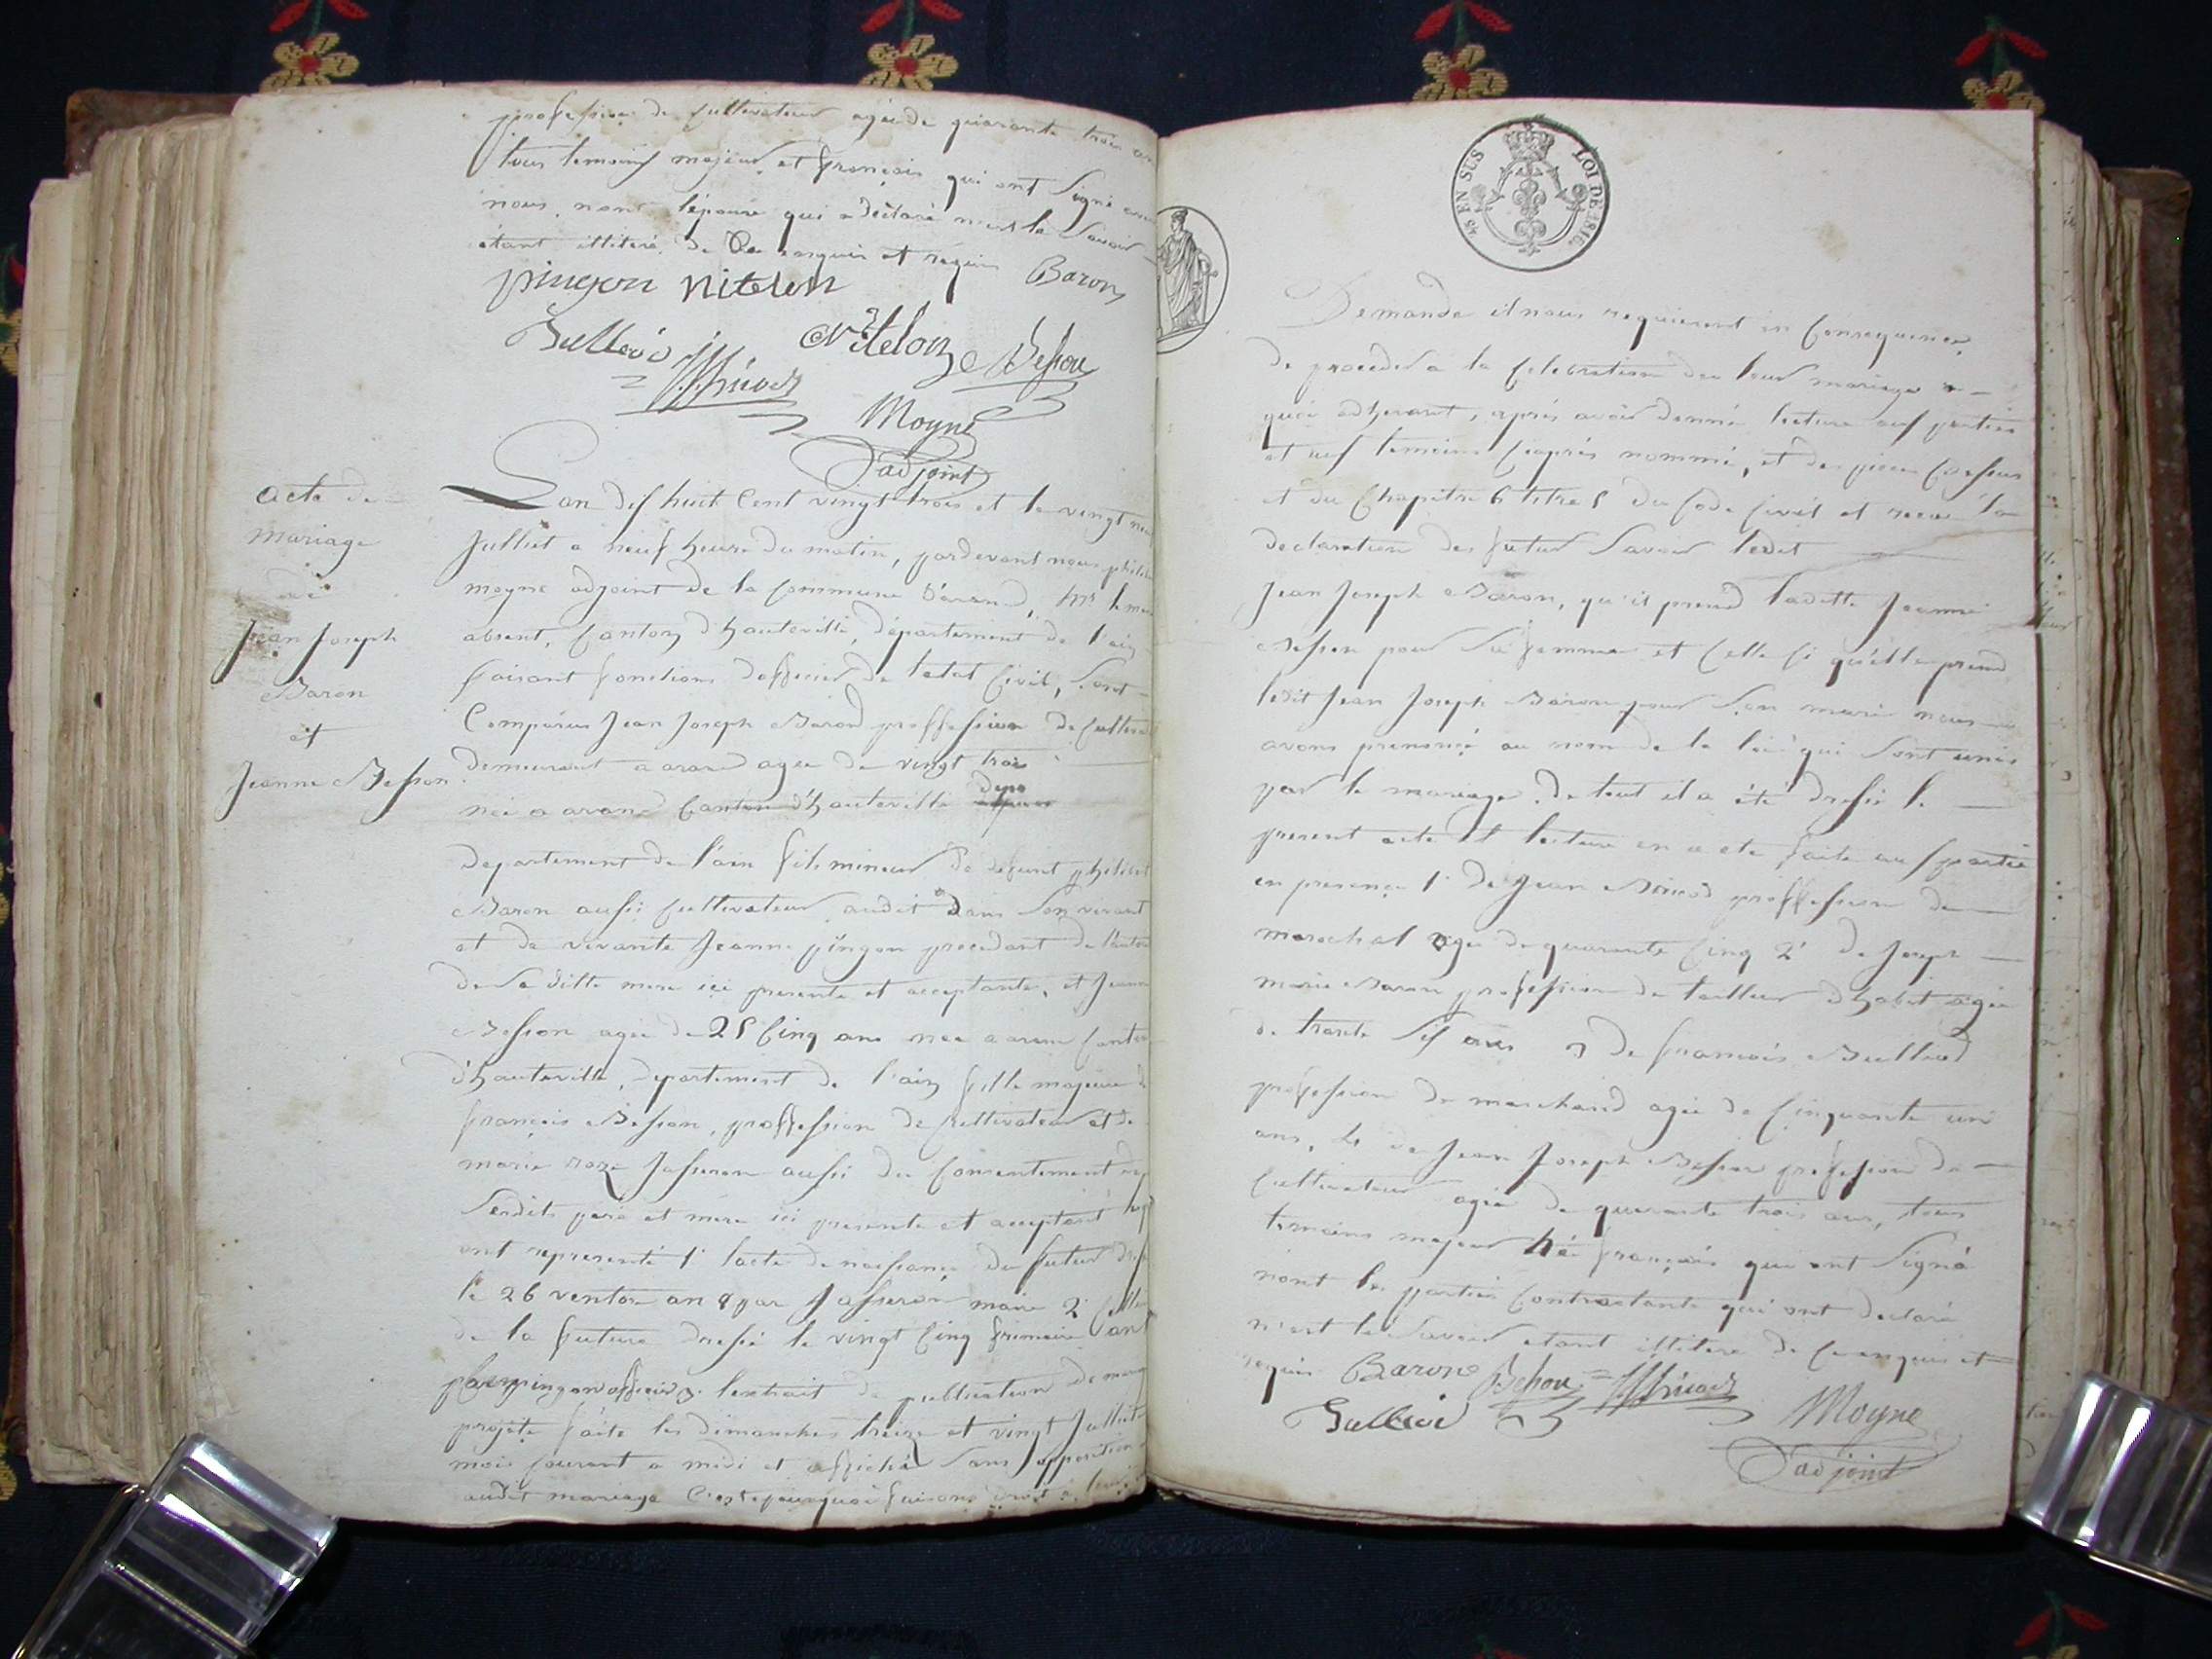 profession de cultivateur agée de quarante trois
tous temoins majeur et françois qui ont signé
nous, non lépouse qui a déclaré ne le savoir
étant illiteré de ce enquis et requis Baron
pingon nitelon
Bullliod nitelon Besson
Moyne
adjoint
acte de
mariage
de
Jean Joseph
Baron
et
Jeanne Besson
Lan dix huit Cent vingt trois et le vingt
Julliet a neuf heure du matin, pardevant nous
moyne adjoint de la Commune d'arand, Mr le
absent, Canton d'hauteville, département de l'ain
faisant fonctions dofficier de letat Civil, sont
Comparus Jean Joseph Baron proffession de
demeurant a arand agée de vingt trois
née a arand Canton d'hauteville
departement de l'ain fils mineur de defunt
Baron aussi cultivateur audit dans son vivant
et de vivante Jeanne pingon procedant de
de sa ditte mere ici presente et acceptante, et
Besson agée de 25 Cinq ans née a aran
d'hauteville, departement de l'ain fille majeure
françois Besson, proffession de cultivateur et de
marie roze Jasseron aussi du Consentement
sesdits pere et mere ici presente et acceptant
ont representé 1° lacte de naissance du futur
le 26 ventose an 8 par Jasseron maire 2°
de la future dressé le vingt Cinq frimaire
par pingon officier 3° lextrait de publication de
projeté faite les dimanches treize et vingt Julliet
mois Courant a midi et affiché sans opposition
audit mariage C'est pourquoi faisons droit a
LOI DE 1816.
EN SUS
Demande il nous requierent en Consequence
de proceder a la Celebration de leur mariage a
quoi adherant, après avoir donné lecture aux parties
et aux temoins Ciaprés nommé, et des pieces Cidessus
et du Chapitre 6 titre 5 du Code Civil et recu la
declaration des futur savoir ledit
Jean Joseph Baron, qu'il prend ladette Jeanne
Besson pour sa femme et Celle Ci qu'elle prend
ledit Jean Joseph Baron pour son mari nous
avons prononcé au nom de la loi qui sont unis
par le mariage. de tout il a été dressé le
present acte et lecture en a ete faite aux partie
en presence 1° de Jean proffession de
marechal agée de quarante Cinq 2° de Joseph
marie Baron profession de tailleur d'habit agée
de trante six ans 3 de francois Bulliod
profession de marchand agée de Cinquante un
ans, 4 de Jean Joseph Besson profession de
cultivateur agée de quarante trois ans, tous
temoins majeur né françois qui ont signé
nont les parties Contractante qui ont declaré
n'est le savoir etant illitere de Ce enquis et
requis Barone Besson
Bulliod Moyne
adjoint